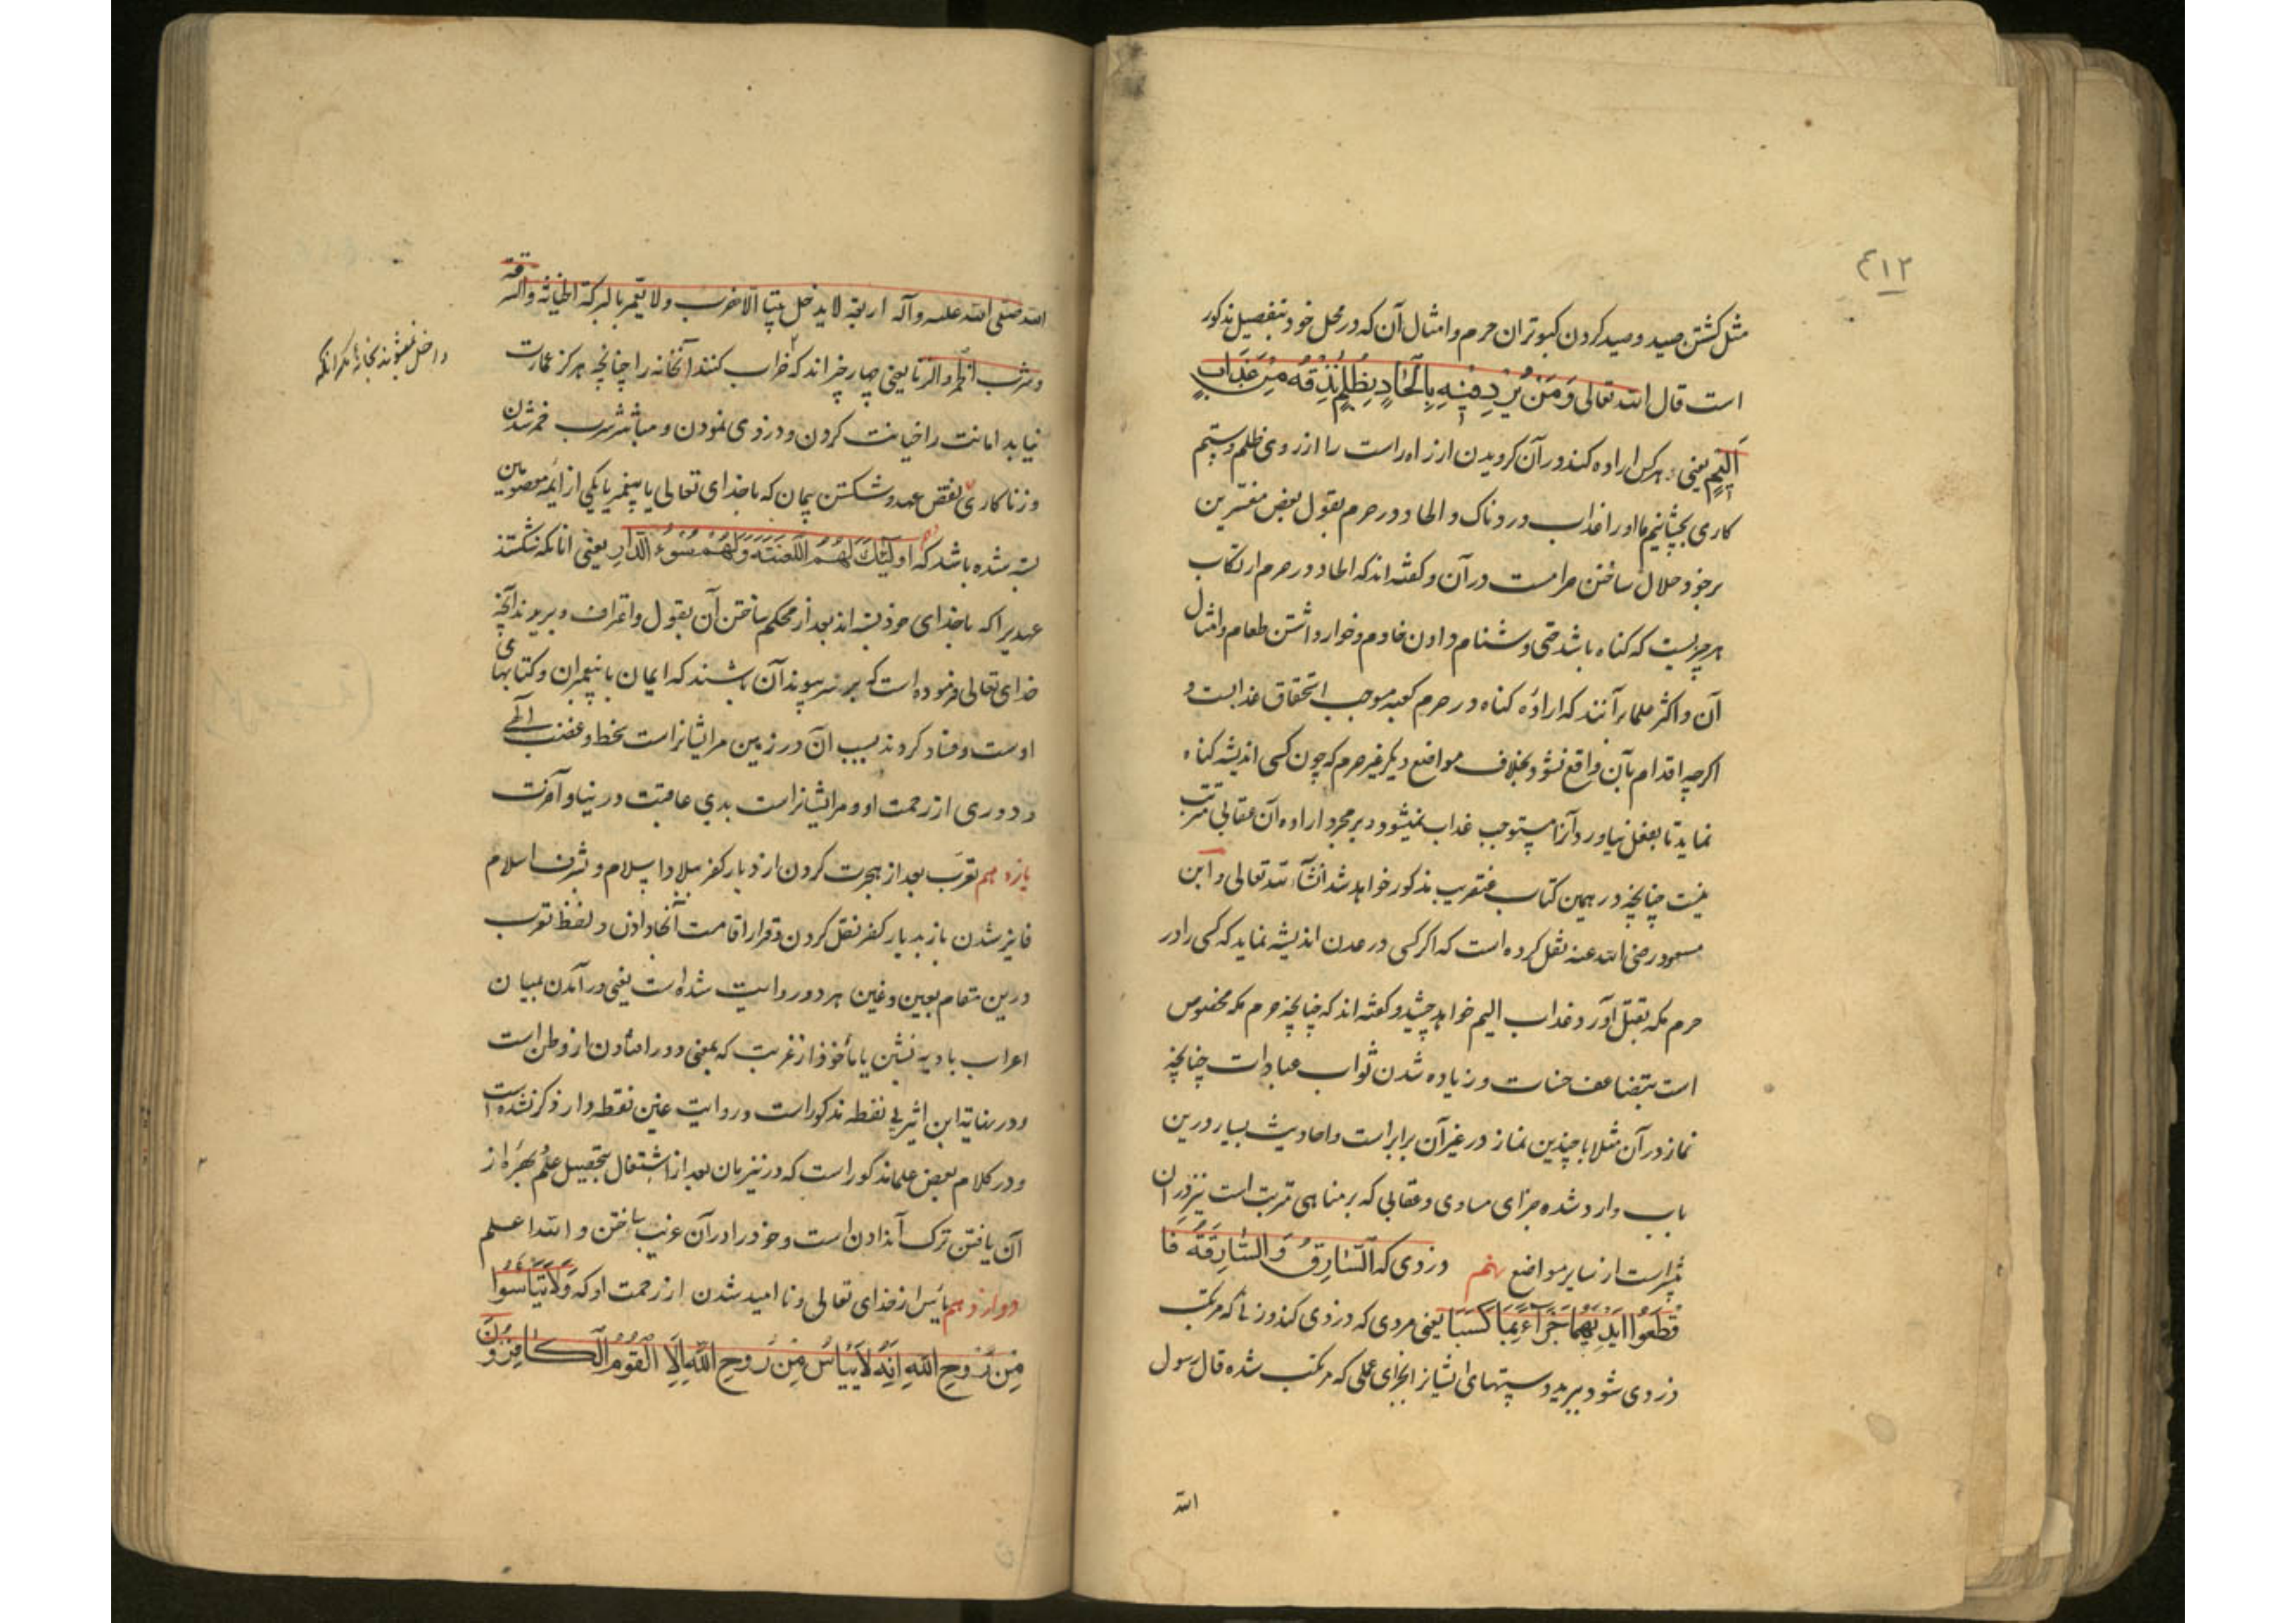 ۴۱۲
مثل کشتن صید و صید کردن کبوتران حرم و امثال آن که در محل خود بتفصیل مذکور
است قال الله تعالی وَمَنْ يُرِدْ فِيْهِ بِاِلْحَادٍ بِظُلْمٍ نُذِقْهُ مِنْ عَذَابٍ
اَلِيْمٍ یعنی هرکس اراده کند در آن کرویدن از راه راست را از روی ظلم و ستم
کاری بچشانیم ما او را عذاب دردناک و الحاد در حرم بقول بعض مفسرین
برخود حلال ساختن حرامست در آن و کفته اند که الحاد در حرم ارتکاب
هر چیزیست که کناه باشد حتی دشنام دادن خادم و خوار داشتن طعام و امثال
آن و اکثر علما برآنند که ارادهٔ کناه در حرم کعبه موجب استحقاق عذابست و
اکرچه اقدام بآن واقع نشود بخلاف مواضع دیکر غیر حرم که چون کسی اندیشه کناه
نماید تا بفعل نیاورد آنرا مستوجب عذاب نمیشود و بر مجرد اراده آن عقابی مترتب
نیست چنانچه در همین کتاب عنقریب مذکور خواهد شد انشآء الله تعالی و ابن
مسعود رضی الله عنه نقل کرده است که اکر کسی در عدن اندیشه نماید که کسی را در
حرم مکه بقتل آورد عذاب الیم خواهد چشید و کفته اند که چنانچه حرم مکه مخصوص
است بتضاعف حسنات و زیاده شدن ثواب عبادات چنانچه
نماز در آن مثلا با چندین نماز در غیر آن برابر است و احادیث بسیار درین
باب وارد شده جزای مساوی و عقابی که بر مناهی مترتب است نیز در آن
بیشتر است از سایر مواضع نهم دزدی که اَلسَّارِقُ وَالسَّارِقَةُ فَا
قْطَعُوا اَيْدِيَهُمَا جَزَآءً بِمَا كَسَبَا یعنی مردی که دزدی کند و زنا که مرتکب
دزدی شود ببرید دستهای ایشانرا بجزای عملی که مرتکب شده قال رسول
الله
الله صلی الله علیه و آله اربعة لا یدخل بیتا الا خرب و لا یعمر بالبرکة الخیانة والسرقة
و شرب الخمر و الزنا یعنی چهار چیزاند که خراب کنند آنخانه را چنانچه هرکز عمارت
داخل نمیشوند بخانهٔ مکر آنکه
نیابد امانت را خیانت کردن و دزدی نمودن و مباشر شرب خمر شدن
و زنا کاری نقض عهد و شکستن پیمان که با خدای تعالی یا پیغمبر یا یکی از ائمه معصومین
بسته شده باشد که اُولٰٓئِكَ لَهُمُ اللَّعْنَةُ وَلَهُمْ سُوْءُ الدَّارِ یعنی آنانکه شکستند
عهدیرا که با خدای خود بسته اند بعد از محکم ساختن آن بقول و اعتراف و بریدند آنچه
خدای تعالی فرموده است که بر سر پیوند آن باشند که ایمان با پیغمبران و کتابهای
اوست و فساد کردند بسبب آن در زمین مر ایشانراست سخط و غضب الٰهی
و دوری از رحمت او و مر ایشانراست بدی عاقبت در دنیا و آخرت
یازدهم تعرّب بعد از هجرت کردن از دیار کفر ببلاد اسلام و بشرف اسلام
فایز شدن باز بدیار کفر نقل کردن و قرار اقامت آنجا دادن و لفظ تعرب
درین مقام بعین و غین هر دو روایت شده است یعنی در آمدن بمیان
اعراب بادیه نشین یا مأخوذ از غربت که بمعنی دور افتادن از وطن است
و در نهایة ابن اثیر بی نقطه مذکور است و روایت غین نقطه دار ذکر نشده است
و در کلام بعض علما مذکور است که درین زمان بعد از اشتغال بتحصیل علم بهره از
آن یافتن ترک آن دادن است و خود را در آن غریب ساختن و الله اعلم
دوازدهم یأس از خدای تعالی و نا امید شدن از رحمت او که وَلَا تَيْاَسُوا
مِنْ رَوْحِ اللهِ اِنَّهُ لَا يَيْاَسُ مِنْ رَوْحِ اللهِ اِلَّا الْقَوْمُ الْكَافِرُوْنَ